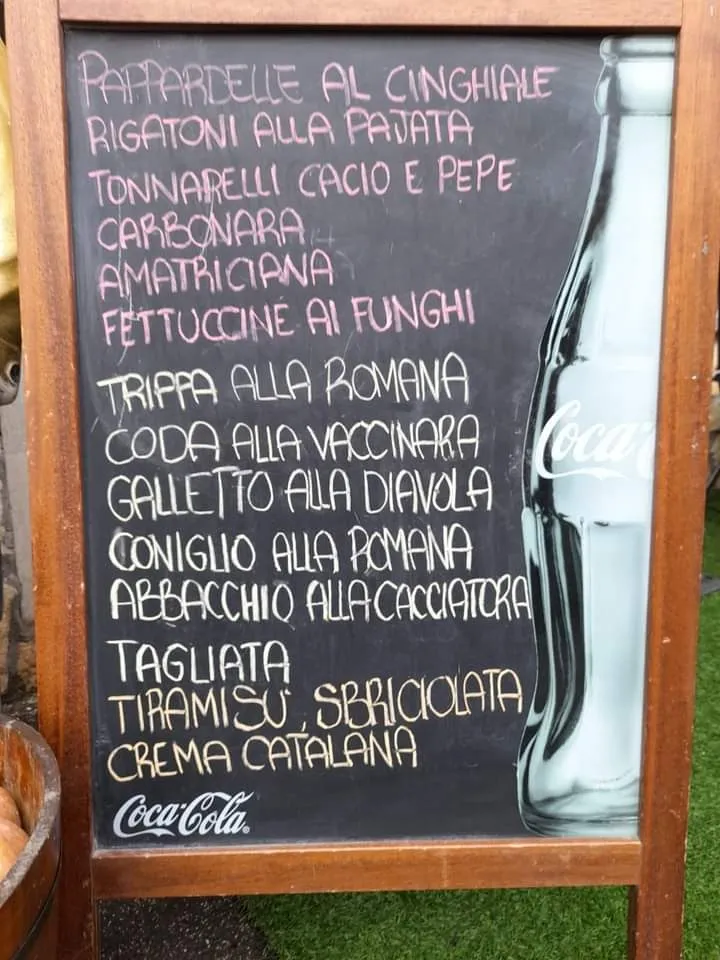 PAPPARDELLE AL CINGHIALE
RIGATONI ALLA PAJATA
TONNARELLI CACIO E PEPE
CARBONARA
AMATRICIANA
FETTUCCINE AI FUNGHI
TRIPPA ALLA ROMANA
CODA ALLA VACCINARA
GALLETTO ALLA DIAVOLA
CONIGLIO ALLA ROMANA
ABBACCHIO ALLA CACCIATORA
TAGLIATA
TIRAMISU', SBRICIOLATA
CREMA CATALANA
Coca-Cola
Coca-C